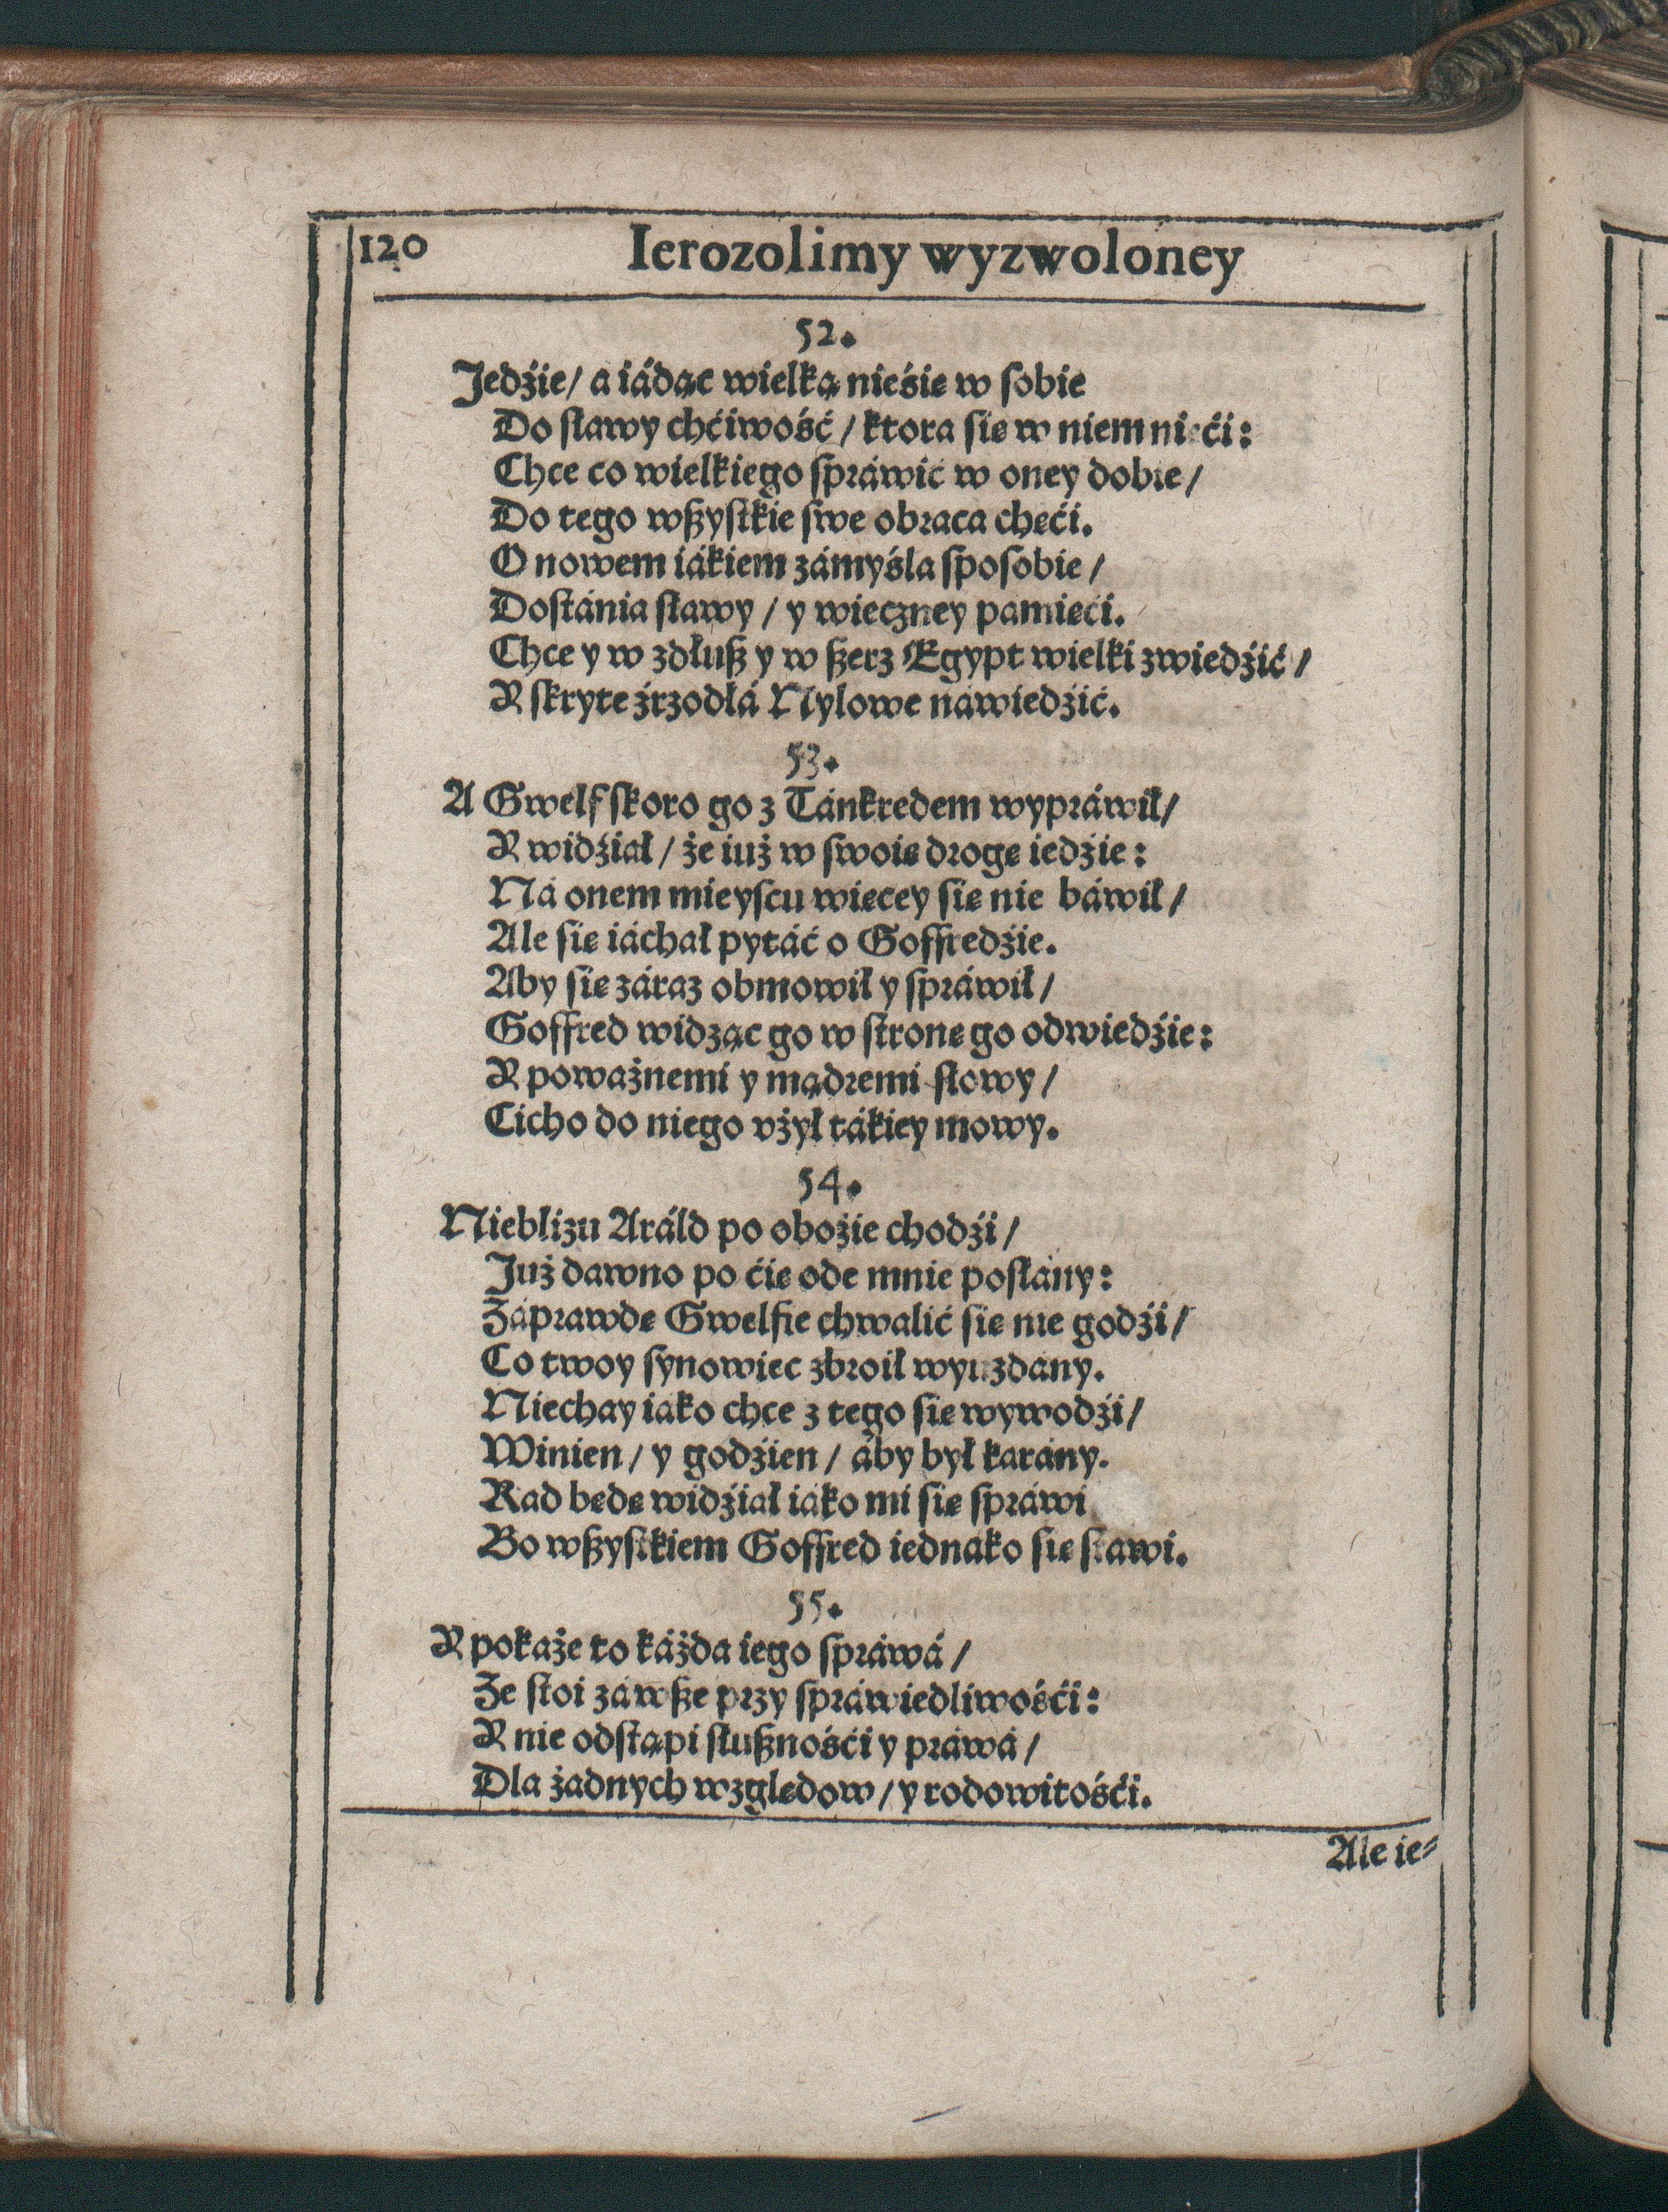 120 Ierozolimy wyzwoloney
52.
Jedźie/ a iádąc wielką nieśie w sobie
Do sławy chćiwość/ ktora się w niem nieći:
Chce co wielkiego spráwić w oney dobie/
Do tego wszystkie swe obraca chęći.
O nowem iákiem zámyśla sposobie/
Dostánia sławy/ y wieczney pamięći.
Chce y w zdłusz y w szerz Egypt wielki zwiedźić/
Y skryte źrzodłá Nylowe náwiedźić.
53.
A Gwelf skoro go z Tánkredem wypráwił/
Y widźiał/ że iuż w swoię drogę iedźie:
Ná onem mieyscu więcey się nie báwił/
Ale się iáchał pytáć o Goffredźie.
Aby się záraz obmowił y spráwił/
Goffred widząc go w stronę go odwiedźie:
Y poważnemi y mądremi słowy/
Cicho do niego vżył tákiey mowy.
54.
Nieblizu Aráld po oboźie chodźi/
Już dawno po ćię ode mnie posłány:
Záprawdę Gwelfie chwalić się nie godźi/
Co twoy synowiec zbroił wyuzdány.
Niechay iako chce z tego się wywodźi/
Winien/ y godźien/ áby był karány.
Rad będę widźiał iáko mi się spráwi
Bo wszystkiem Goffred iednako się stawi.
55.
Y pokaże to káżda iego spráwá/
Że stoi záwsze przy spráwiedliwośći:
Y nie odstąpi słusznośći y práwá/
Dla żadnych względow/ y rodowitośći.
Ale ie⸗